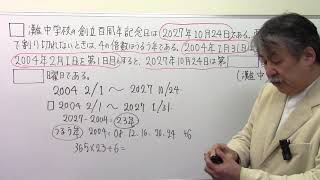 灘中学校の創立百周年記念日は、2027年10月24日である。西
で割り切れないときは、4の倍数はうるう年である。2004年1月31日
2004年2月1日を第1日とすると、2027年10月24日は第
曜日である。
2004 2/1 〜 2027 10/24
2004 2/1 〜 2027 1/31
2027-2004=23年
うるう年 2004, 08, 12, 16, 20, 24 +6
365×23+6=